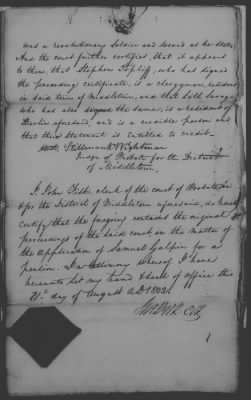 was a revolutionary Soldier and served as he states.
And the court further certifies, that it appears
to them that Stephen Topliff, who has signed
the preceeding certificate, is a clergyman, resident
in said town of Middletown, and that Seth Savage
who has also signed the same, is a resident of
Berlin aforesaid, and is a credible person and
that their statement is entitled to credit.
Stillman K Wightman
Judge of Probate for the District
of Middletown.
I, John Fisk, clerk of the court of Probate in
& for the District of Middletown aforesaid, do hereby
certify that the foregoing contains the original
proceedings of the said court, in the matter of
the application of Samuel Galpin for a
pension. In testimony whereof I have
hereunto set my hand & seal of office this
21st day of August AD 1832.
John Fisk Clk